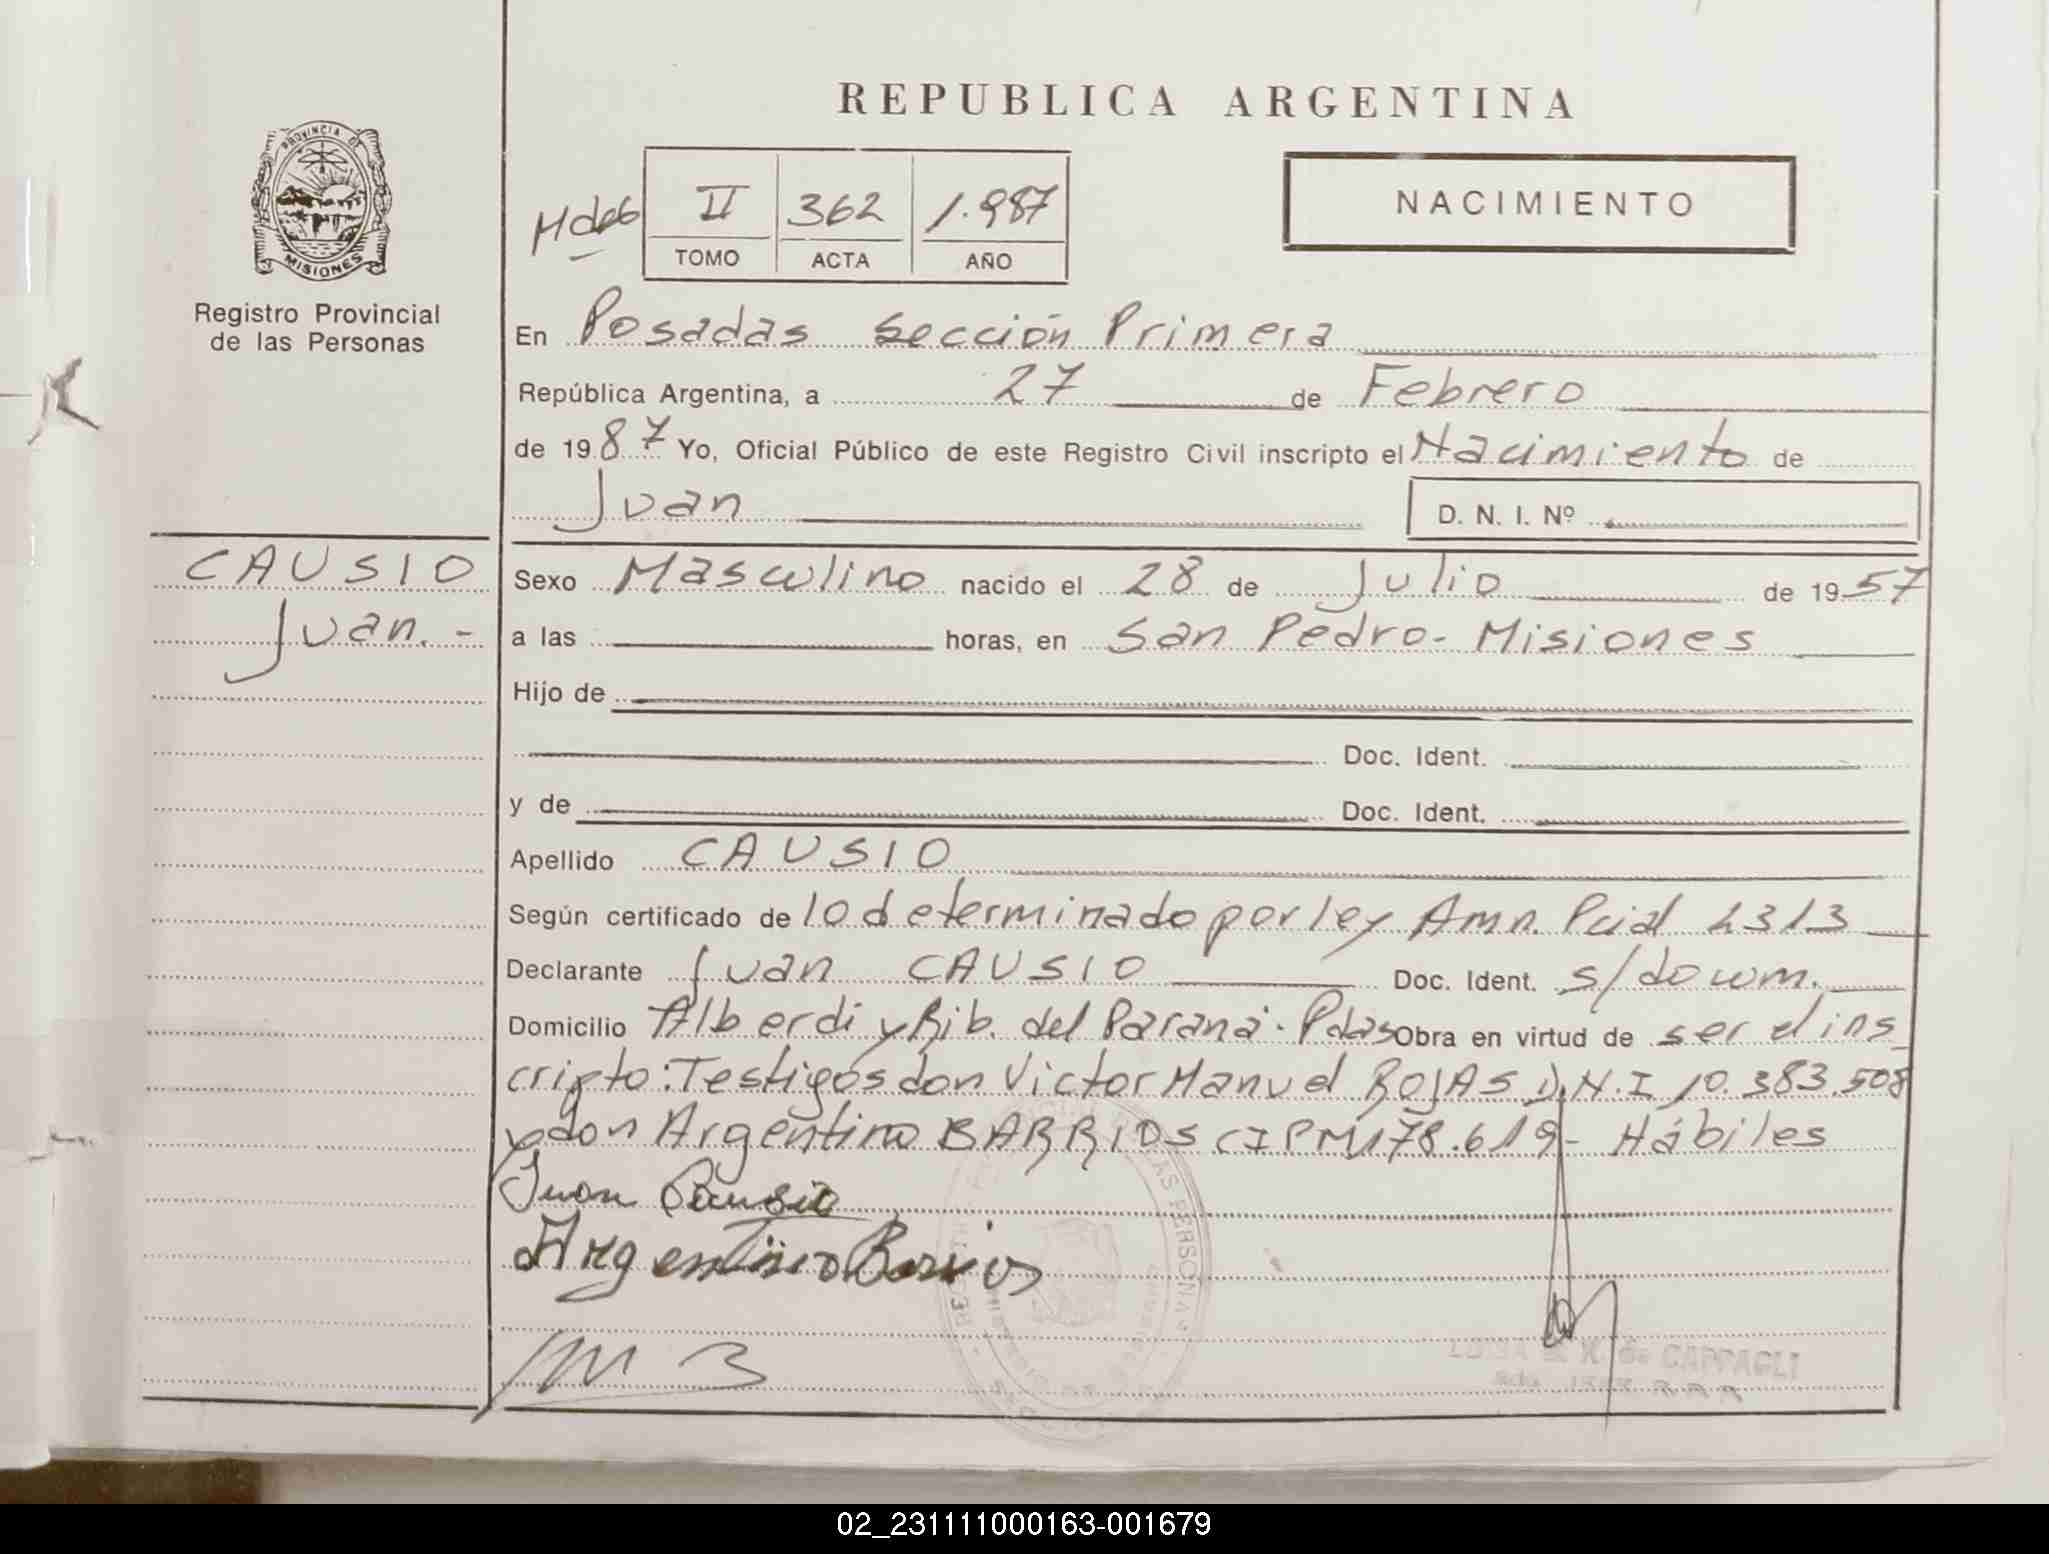 REPUBLICA ARGENTINA
PROVINCIA DE
MISIONES
Registro Provincial
de las Personas
II 362 1.987
TOMO ACTA AÑO
NACIMIENTO
En Posadas Sección Primera
República Argentina, a 27 de Febrero
de 1987 Yo, Oficial Público de este Registro Civil inscripto el Nacimiento de
Juan D. N. I. Nº
CAUSIO
Juan.-
Sexo Masculino nacido el 28 de Julio de 1957
a las horas, en San Pedro- Misiones
Hijo de
Doc. Ident.
y de Doc. Ident.
Apellido CAUSIO
Según certificado de lo determinado por ley Amn. Pcial 2313
Declarante Juan CAUSIO Doc. Ident. s/docum.
Domicilio Alberdi y Rib. del Paraná. Pdas Obra en virtud de ser el ins
cripto: Testigos don Victor Manuel ROJAS D.N.I 10.383.508
y don Argentino BARRIOS CIPM 178.619- Hábiles
Juan Causio
Argentino Barrios
LAS PERSONAS
de CAPPAGLI
02_231111000163-001679